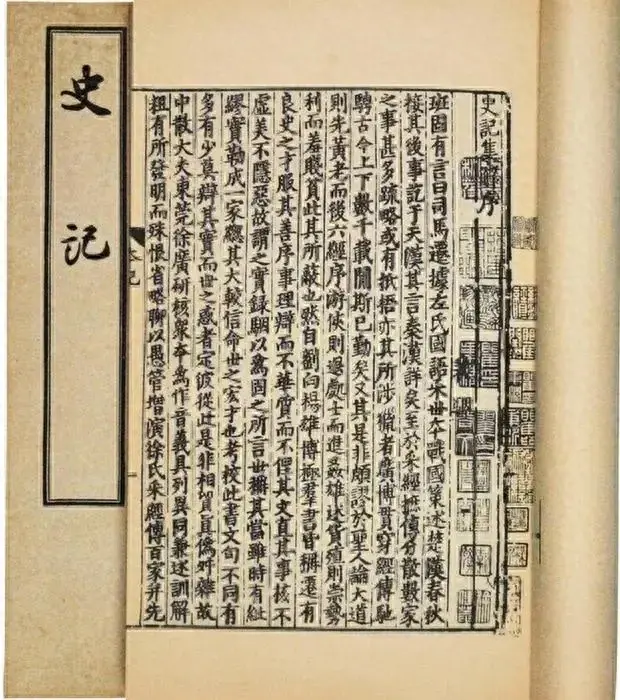 史記
史記集解序
班固有言曰司馬遷據左氏國語采世本戰國策述楚漢春秋
接其後事訖于天漢其言秦漢詳矣至於采經摭傳分散數家
之事甚多疏略或有抵梧亦其所涉獵者廣博貫穿經傳馳
騁古今上下數千載閒斯已勤矣又其是非頗謬於聖人論大道
則先黃老而後六經序游俠則退處士而進姦雄述貨殖則崇勢
利而羞賤貧此其所蔽也然自劉向楊雄博極羣書皆稱遷有
良史之才服其善序事理辯而不華質而不俚其文直其事核不
虛美不隱惡故謂之實録駰以爲固之所言世稱其當雖時有紕
繆實勒成一家總其大較信命世之宏才也考校此書文句不同有
多有少莫辯其實而世之惑者定彼從此是非相貿真僞舛雜故
中散大夫東莞徐廣研核衆本爲作音義具列異同兼述訓解
粗有所發明而殊恨省略聊以愚管增演徐氏采經傳百家并先